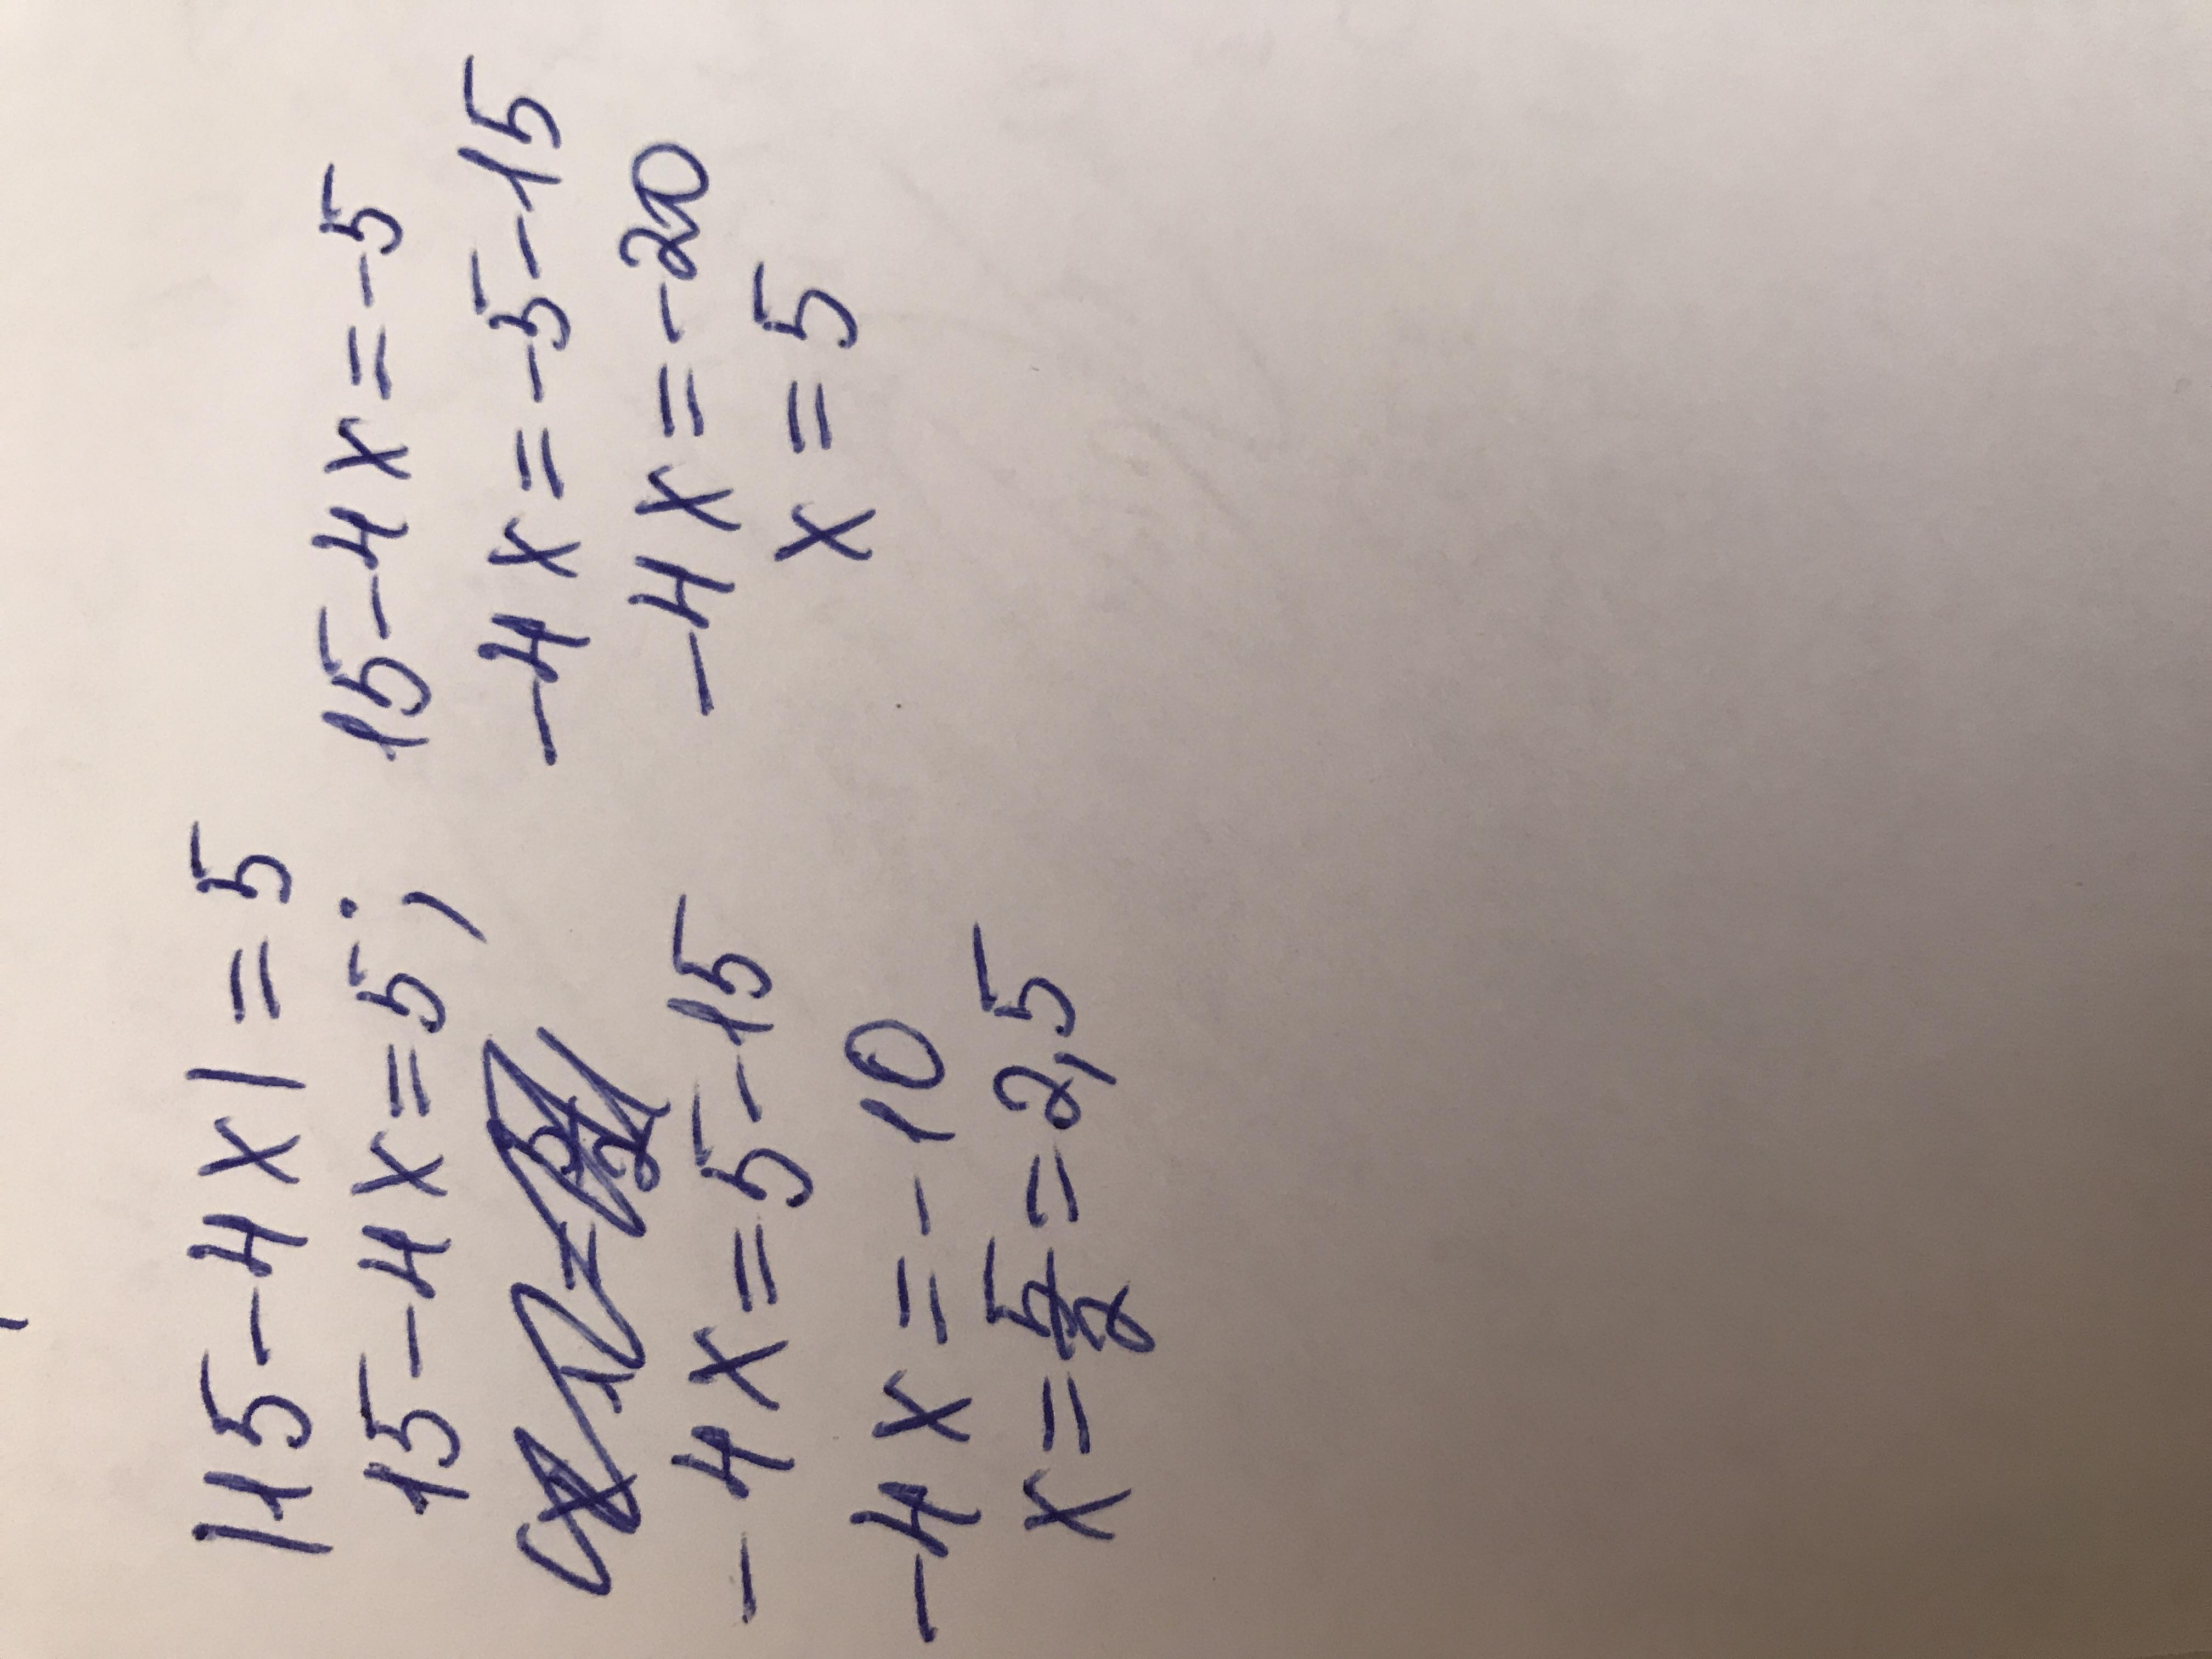 |15-4x|=5
15-4x=5;
-4x=5-15
-4x=-10
x=5/2=2,5
15-4x=-5
-4x=-5-15
-4x=-20
x=5